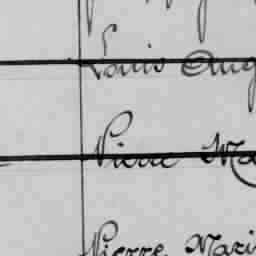 Louis Aug
Pierre Ma
Pierre Mari